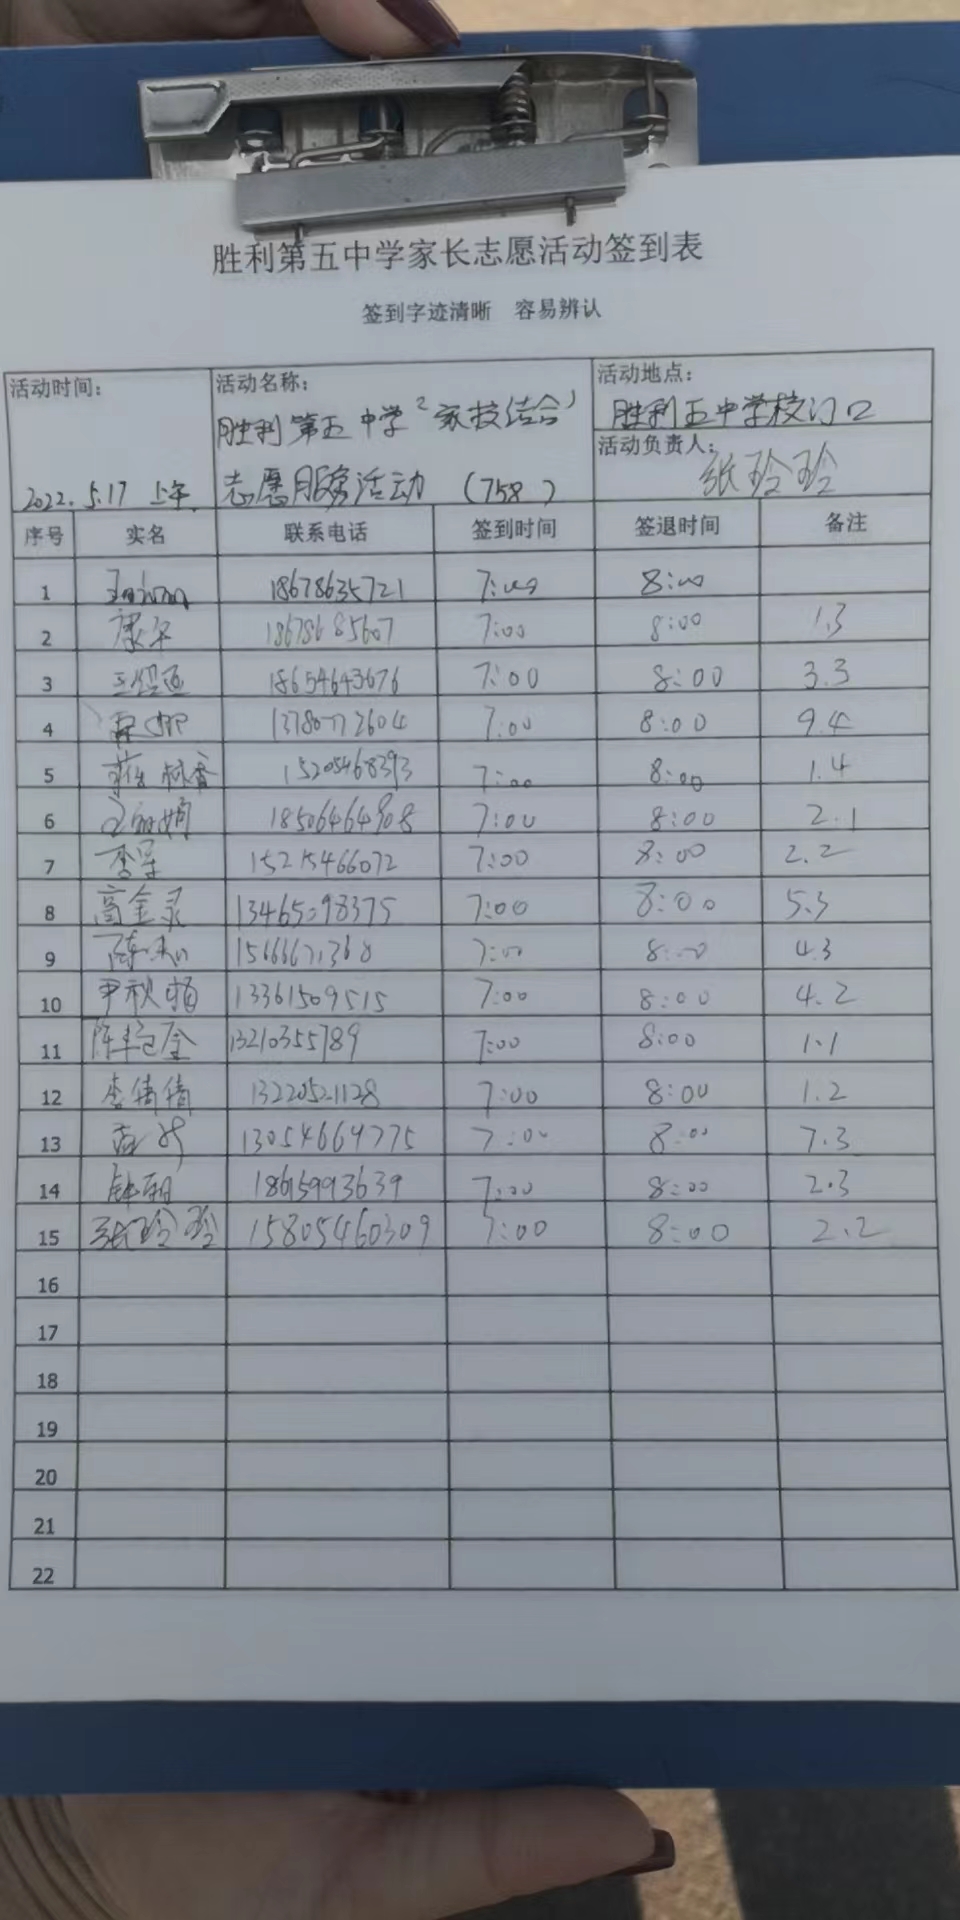 胜利第五中学家长志愿活动签到表
签到字迹清晰 容易辨认
活动时间： 2022.5.17 上午
活动名称： 胜利第五中学“家校结合”
志愿服务活动 (758)
活动地点： 胜利五中学校门口
活动负责人： 张玲玲
序号 实名 联系电话 签到时间 签退时间 备注
1 18678635721 7:00 8:00
2 康华 18678685607 7:00 8:00 1.3
3 18654643676 7:00 8:00 3.3
4 13780772604 7:00 8:00 9.4
5 15205468393 7:00 8:00 1.4
6 18506464908 7:00 8:00 2.1
7 15215466072 7:00 8:00 2.2
8 高金录 13465098375 7:00 8:00 5.3
9 7:00 8:00 4.3
10 尹秋梅 13361509515 7:00 8:00 4.2
11 13210355789 7:00 8:00 1.1
12 李倩倩 13220521128 7:00 8:00 1.2
13 13054664775 7:00 8:00 7.3
14 18615993639 7:00 8:00 2.3
15 张玲玲 15805460309 7:00 8:00 2.2
16
17
18
19
20
21
22